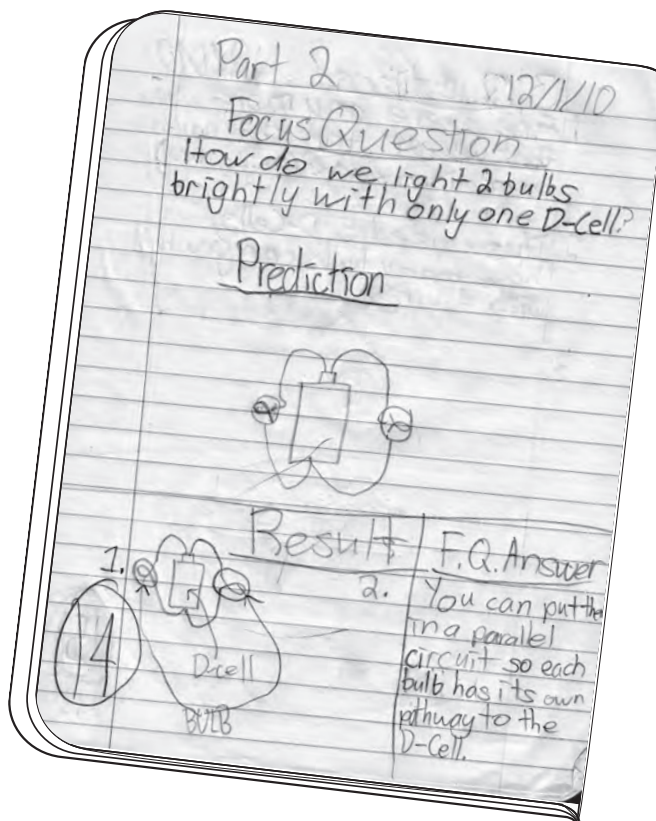 Part 2
12/1/10
Focus Question
How do we light 2 bulbs
brightly with only one D-Cell?
Prediction
Result
1.
D-cell
BULB
14
F.Q. Answer
2. You can put the
in a parallel
circuit so each
bulb has its own
pthway to the
D-Cell.